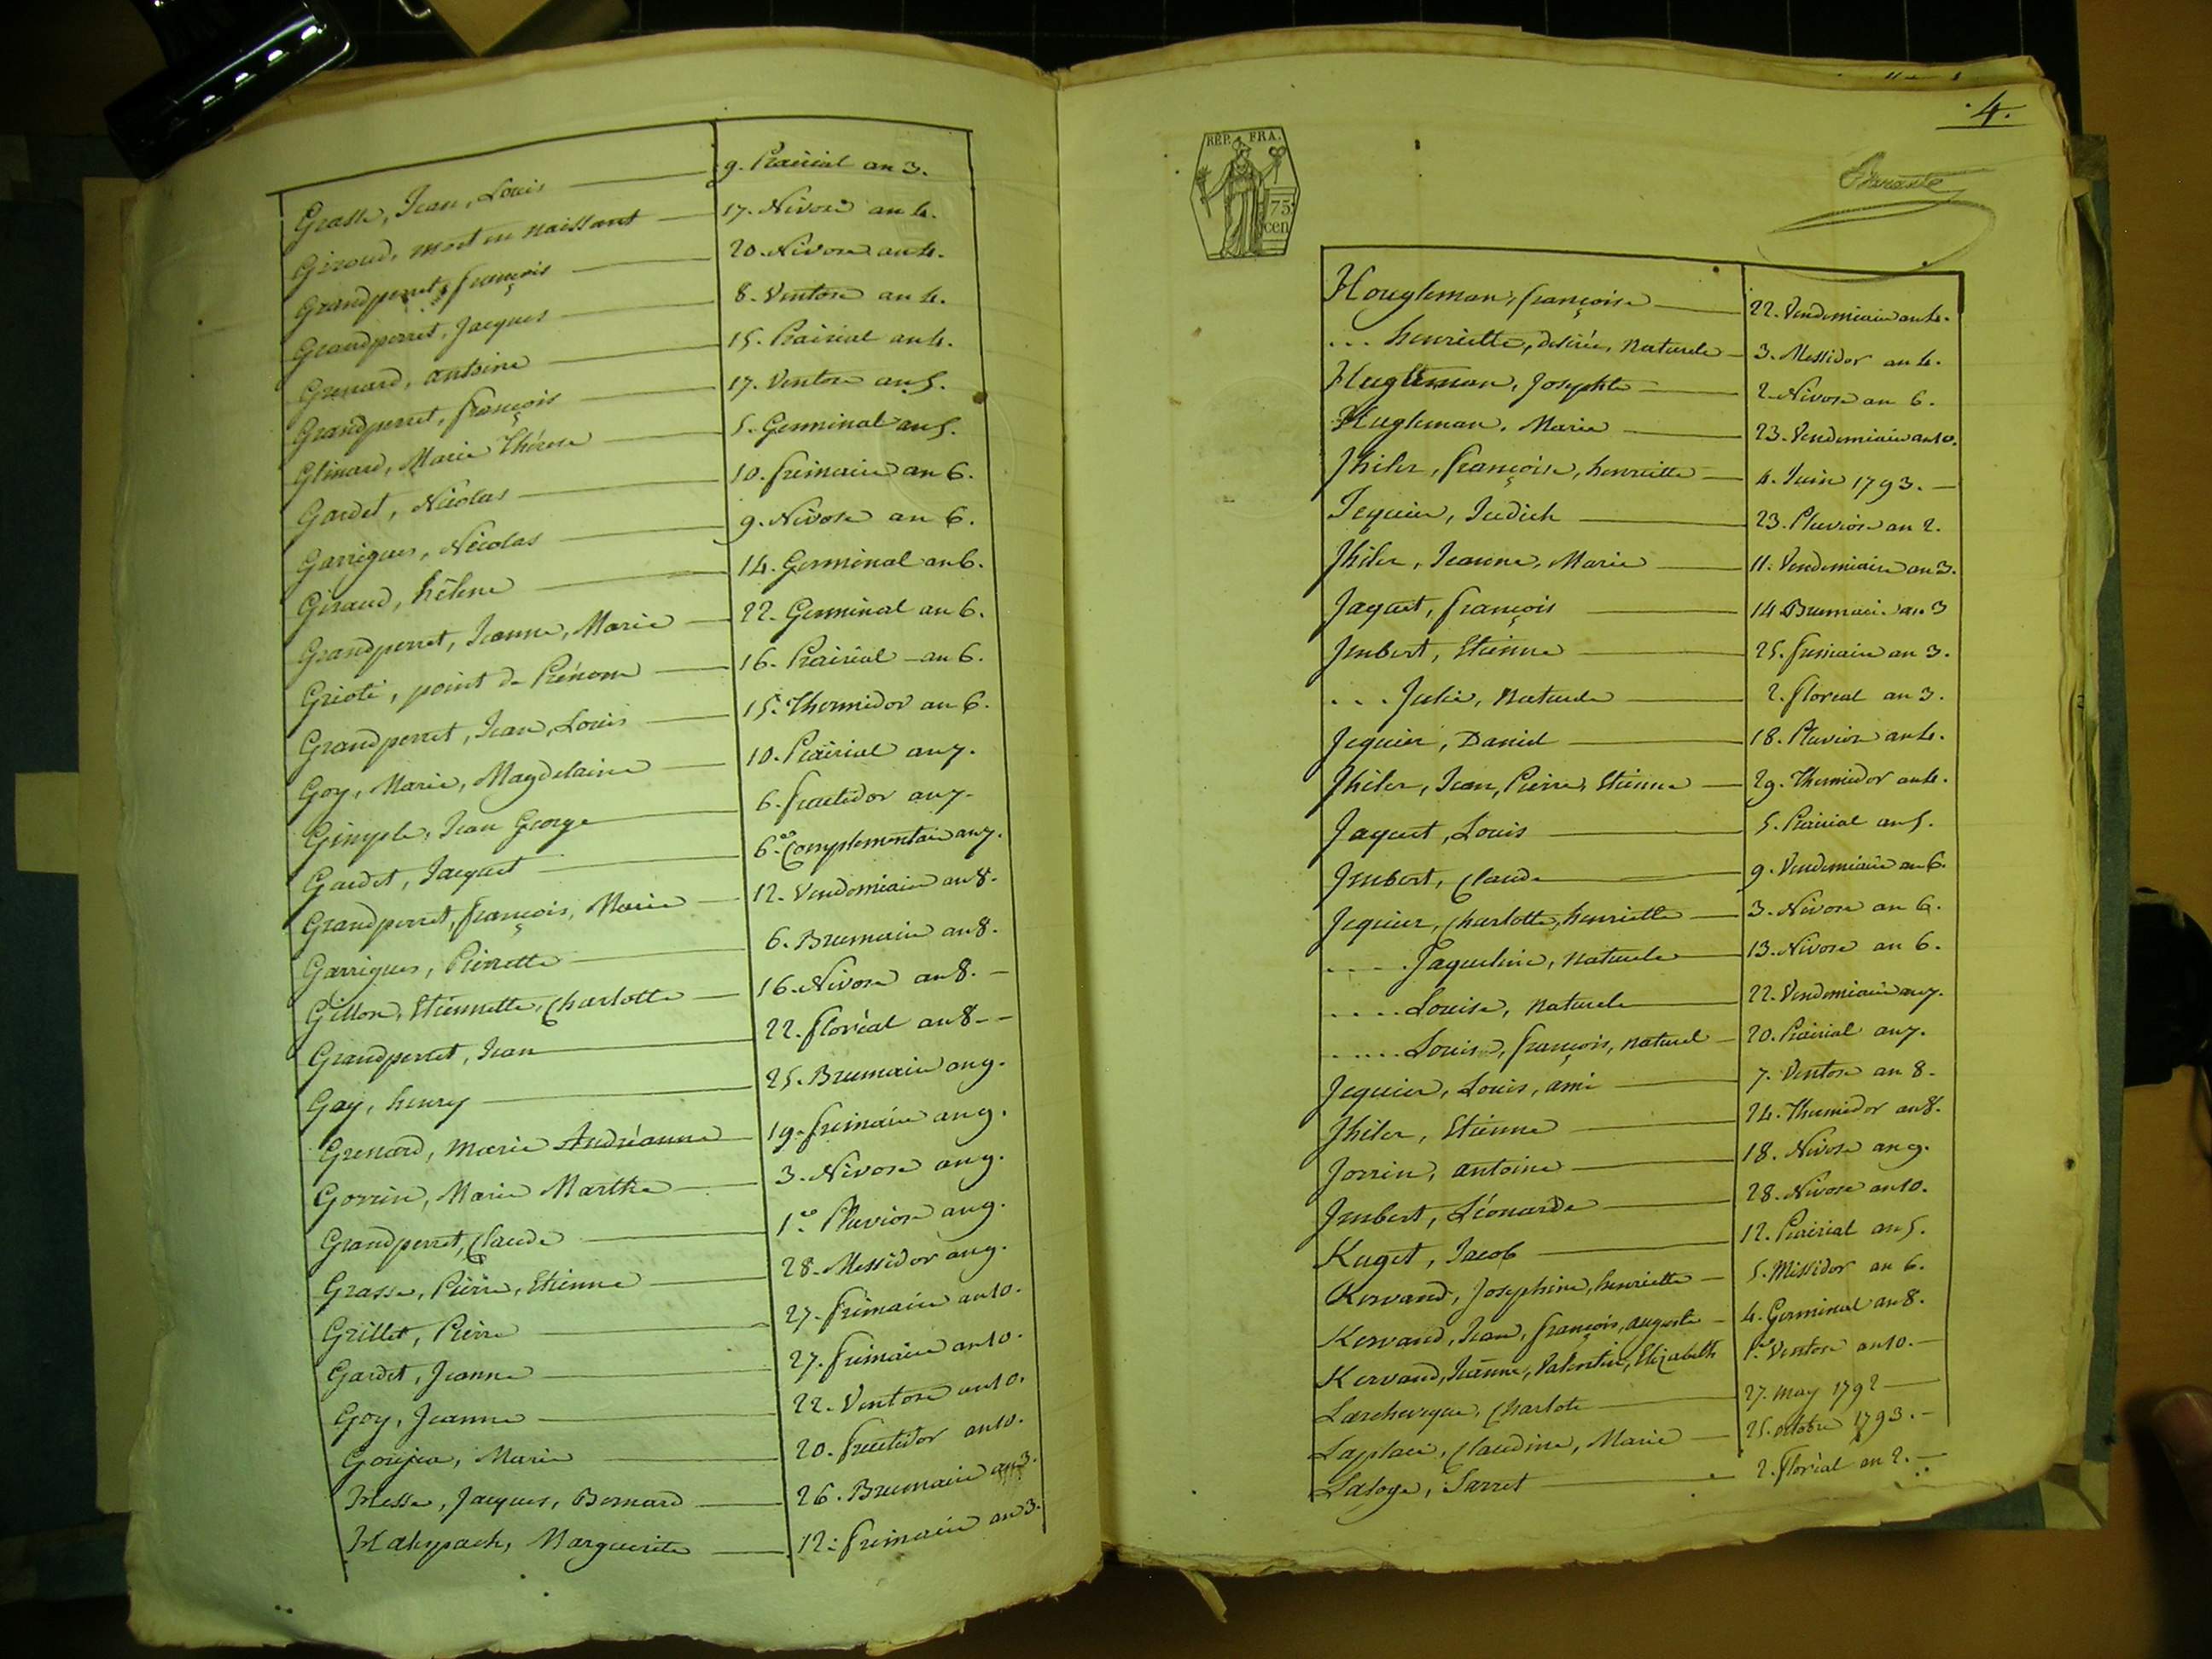 Grasse, Jean, Louis 9. Prairial an 3.
Giroud, mort en naissant 17. Nivose an 4.
Grandperret, françois 20. Nivose an 4.
Grandperret, Jacques 8. Ventose an 4.
Grenard, antoine 15. Prairial an 4.
Grandperret, françois 17. Ventose an 5.
Glinard, Marie Thérese 5. Germinal an 5.
Gardet, Nicolas 10. frimaire an 6.
Garrigues, Nicolas 9. Nivose an 6.
Giraud, hélene 14. Germinal an 6.
Grandperret, Jeanne, Marie 22. Germinal an 6.
Grioti, point de Prénom 16. Prairial an 6.
Grandperret, Jean, Louis 15. Thermidor an 6.
Goy, Marie, Magdelaine 10. Prairial an 7.
Gimple, Jean George 6. fructidor an 7.
Gardet, Jaquet 6.e Complementaire an 7.
Grandperret, françois, Marie 12. Vendemiaire an 8.
Garrigues, Pierrette 6. Brumaire an 8.
Gillon, Etiennette, Charlotte 16. Nivose an 8.
Grandperret, Jean 22. floréal an 8.
Gay, henry 25. Brumaire an 9.
Grenard, Marie Andréanne 19. frimaire an 9.
Gorrin, Marie Marthe 3. Nivose an 9.
Grandperret, Claude 1.er Pluviose an 9.
Grasse, Pierre, Etienne 28. Messidor an 9.
Grillet, Pierre 27. frimaire an 10.
Gardet, Jeanne 27. frimaire an 10.
Goy, Jeanne 22. Ventose an 10.
Goujea, Marie 20. fructidor an 10.
Hesse, Jacques, Bernard 26. Brumaire an 3.
Marguerite 12. frimaire an 3.
4.
REP. FRA.
75
cen
Hougleman, françoise 22. Vendemiaire an 4.
... henriette, desirée, Naturele 3. Messidor an 4.
Hugleman, Josephte 2. Nivose an 6.
Hugleman, Marie 23. Vendemiaire an 10.
Jhiler, françoise, henriette 4. Juin 1793.
Jequier, Judich 23. Pluviose an 2.
Jhiler, Jeanne, Marie 11. Vendemiaire an 3.
Jaquet, françois 14 Brumaire an 3
Jmbert, Etienne 25. frimaire an 3.
... Julie, Naturele 2. floreal an 3.
Jequier, Daniel 18. Pluviose an 4.
Jhiler, Jean, Pierre, Etienne 29. Thermidor an 4.
Jaquet, Louis 5. Prairial an 5.
Jmbert, Claude 9. Vendemiaire an 6.
Jequier, Charlotte, henriette 3. Nivose an 6.
.... Jaqueline, Naturele 13. Nivose an 6.
.... Louise, Naturele 22. Vendemiaire an 7.
..... Louis, françois, naturel 20. Prairial an 7.
Jequier, Louis, ami 7. Ventose an 8.
Jhiler, Etienne 24. Thermidor an 8.
Jorrin, antoine 18. Nivose an 9.
Jmbert, Léonarde 28. Nivose an 10.
Kuget, Jacob 12. Prairial an 5.
Kervand, Josephine, henriette 5. Messidor an 6.
Kervand, Jean, françois, auguste 4. Germinal an 8.
Kervand, Jeanne, Valentine, Elizabeth 1.er Ventose an 10.
Larcheveque, Charlote 27. May 1792
Laplace, Claudine, Marie 25. octobre 1793.
Laloge, Sarret 2. floréal an 2.